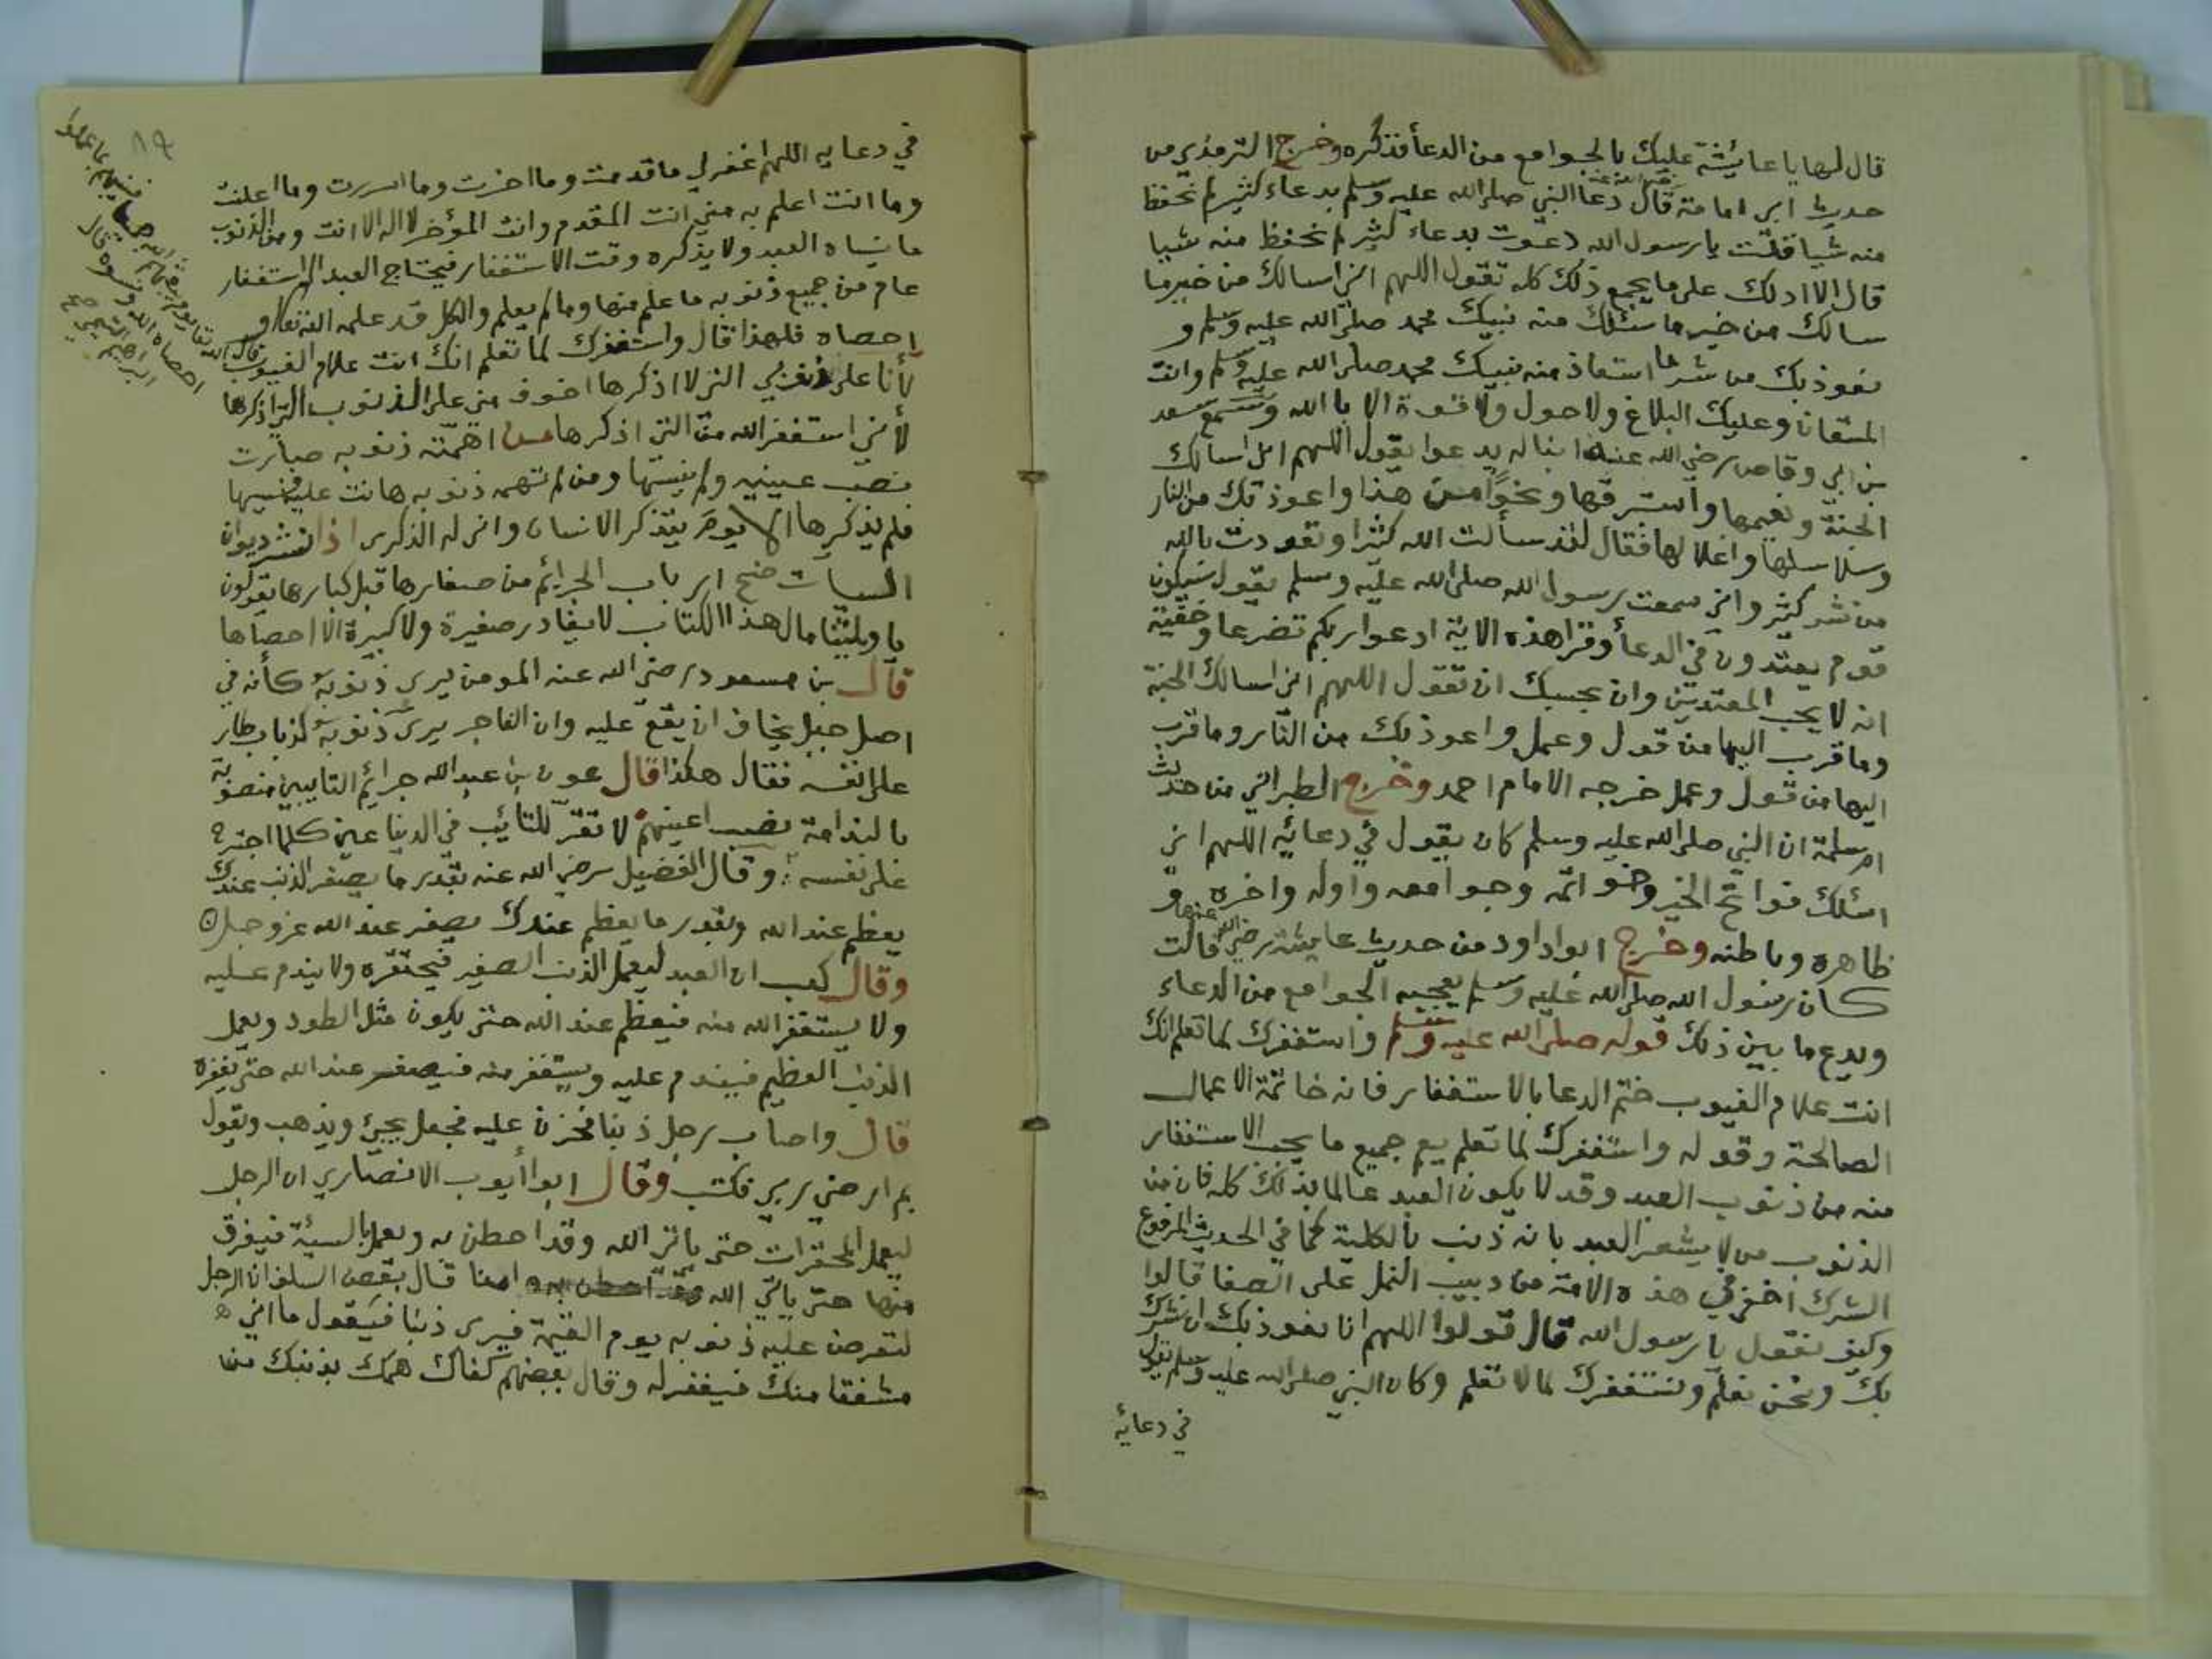 قال لها يا عائشة عليك بالجوامع من الدعأ فذكره وخرج الترمذي من
حديث ابي امامة قال دعا النبي صلى الله عليه وسلم بدعاء كثير لم نحفظ
منه شيا فقلت يا رسول الله دعوت بدعاء كثير لم نحفظ منه شيا
قال الا ادلك على ما يجمع ذلك كله تقول اللهم اني اسالك من خير ما
سالك من خير ما سئلك منه نبيك محمد صلى الله عليه وسلم و
نعوذ بك من شر ما استعاذ منه نبيك محمد صلى الله عليه وسلم وانت
المستعان وعليك البلاغ ولا حول ولا قوة الا بالله وسمع سعد
بن ابي وقاص رضي الله عنه ابنا له يدعوا يقول اللهم اني اسالك
الجنة ونعيمها واستبرقها ونحوًا من هذا واعوذ بك من النار
وسلاسلها واغلالها فقال لقد سألت الله كثيرا وتعوذت بالله
من شر كثير واني سمعت رسول الله صلى الله عليه وسلم يقول سيكون
قوم يعتدون في الدعأ وقرا هذه الاية ادعوا ربكم تضرعا وخفية
انه لا يحب المعتدين وان بحسبك ان تقول اللهم اني اسالك الجنة
وما قرب اليها من قول وعمل واعوذ بك من النار وما قرب
اليها من قول وعمل خرجه الامام احمد وخرج الطبراني من حديث
ام سلمة ان النبي صلى الله عليه وسلم كان يقول في دعائه اللهم اني
اسئلك فواتح الخير وخواتمه وجوامعه واوله واخره و
ظاهره وباطنه وخرج ابو داود من حديث عايشة رضي الله عنها قالت
كان رسول الله صلى الله عليه وسلم يعجبه الجوامع من الدعاء
ويدع ما بين ذلك قوله صلى الله عليه وسلم واستغفرك لما تعلم انك
انت علام الغيوب ختم الدعا بالاستغفار فانه خاتمة الاعمال
الصالحة وقوله واستغفرك لما تعلم يعم جميع ما يجب الاستغفار
منه من ذنوب العبد وقد لا يكون العبد عالما بذلك كله فان من
الذنوب من لا يشعر العبد بانه ذنب بالكلية كما في الحديث المرفوع
الشرك اخفى في هذه الامة من دبيب النمل على الصفا قالوا
وكيف نقول يا رسول الله قال قولوا اللهم انا نعوذ بك ان نشرك
بك ونحن نعلم ونستغفرك لما لا نعلم وكان النبي صلى الله عليه وسلم يقول
في دعائه
في دعايه اللهم اغفر لي ما قدمت وما اخرت وما اسررت وما اعلنت
وما انت اعلم به مني انت المقدم وانت المؤخر لا اله الا انت ومن الذنوب
ما ينساه العبد ولا يذكره وقت الاستغفار فيحتاج العبد الى استغفار
عام من جميع ذنوبه ما علم منها وما لم يعلم والكل قد علمه الله تعالى و
احصاه فلهذا قال واستغفرك لما تعلم انك انت علام الغيوب
لأنا على ذنوبي التي لا اذكرها اخوف مني على الذنوب التي اذكرها
لأني استغفر الله من التي اذكرها من اهمته ذنوبه صارت
نصب عينيه ولم ينسها ومن لم تهمه ذنوبه هانت عليه فنسيها
فلم يذكرها الا يوم يتذكر الانسان وانى له الذكرى اذا نشر ديوان
السيات ضج ارباب الجرائم من صغارها قبل كبارها يقولون
يا ويلتنا مال هذا الكتاب لا يغادر صغيرة ولا كبيرة الا احصاها
قال بن مسعود رضي الله عنه المومن يرى ذنوبه كأنه في
اصل جبل يخاف ان يقع عليه وان الفاجر يرى ذنوبه كذباب طار
على انفه فقال هكذا قال عون بن عبد الله جرائم التايبين منصوبة
بالندامة نصب اعينهم لا تقر للتائب في الدنيا عين كلما اجترح
على نفسه وقال الفضيل رضي الله عنه بقدر ما يصغر الذنب عندك
يعظم عند الله وبقدر ما يعظم عندك يصغر عند الله عز وجل
وقال كعب ان العبد ليعمل الذنب الصغير فيحتقره ولا يندم عليه
ولا يستغفر الله منه فيعظم عند الله حتى يكون مثل الطود ويعمل
الذنب العظيم فيندم عليه ويستغفر منه فيصغر عند الله حتى يغفره
قال واصاب رجل ذنبا فحزن عليه فجعل يجيئ ويذهب ويقول
بم ارضي ربي فكتب وقال ابو أيوب الانصاري ان الرجل
ليعمل المحقرات حتى ياتي الله وقد احطن به ويعمل بالسيئة فيفرق
منها حتى ياتي الله امنا قال بعض السلف ان الرجل
لتعرض عليه ذنوبه يوم القيمة فيرى ذنبا فيقول ما اني
مشفقا منك فيغفر له وقال بعضهم كفاك همك بذنبك من
قال الله تعالى يوم يبعثهم الله جميعا فينبئهم بما عملوا
احصاه الله ونسوه قال
ابراهيم التيمي